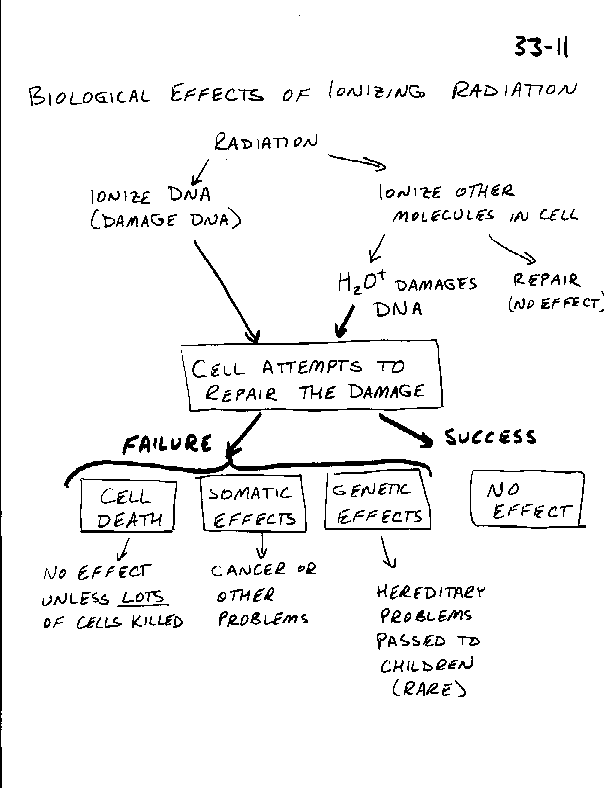 33-11
BIOLOGICAL EFFECTS OF IONIZING RADIATION
RADIATION
IONIZE DNA
(DAMAGE DNA)
IONIZE OTHER
MOLECULES IN CELL
H₂O⁺ DAMAGES
DNA
REPAIR
(NO EFFECT)
CELL ATTEMPTS TO
REPAIR THE DAMAGE
FAILURE
SUCCESS
CELL
DEATH
SOMATIC
EFFECTS
GENETIC
EFFECTS
NO
EFFECT
NO EFFECT
UNLESS LOTS
OF CELLS KILLED
CANCER OR
OTHER
PROBLEMS
HEREDITARY
PROBLEMS
PASSED TO
CHILDREN
(RARE)